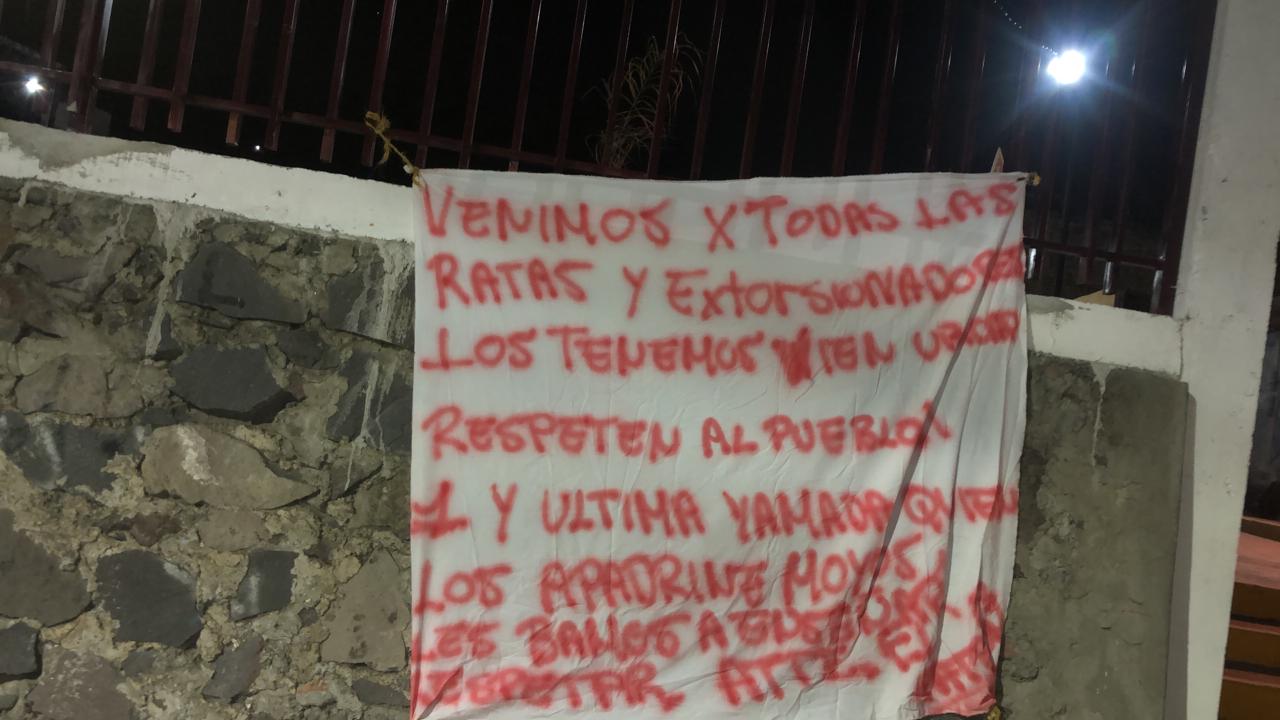 VENIMOS X TODAS LAS
RATAS Y ExtorsIONADORES
LOS TENEMOS IEN
RESPETEN AL PUEBLO
1 Y ULTIMA YAMADA QUIEN
LOS APADRINE MOVOS
LES BAMOS A ENSEÑAR A
ATTE